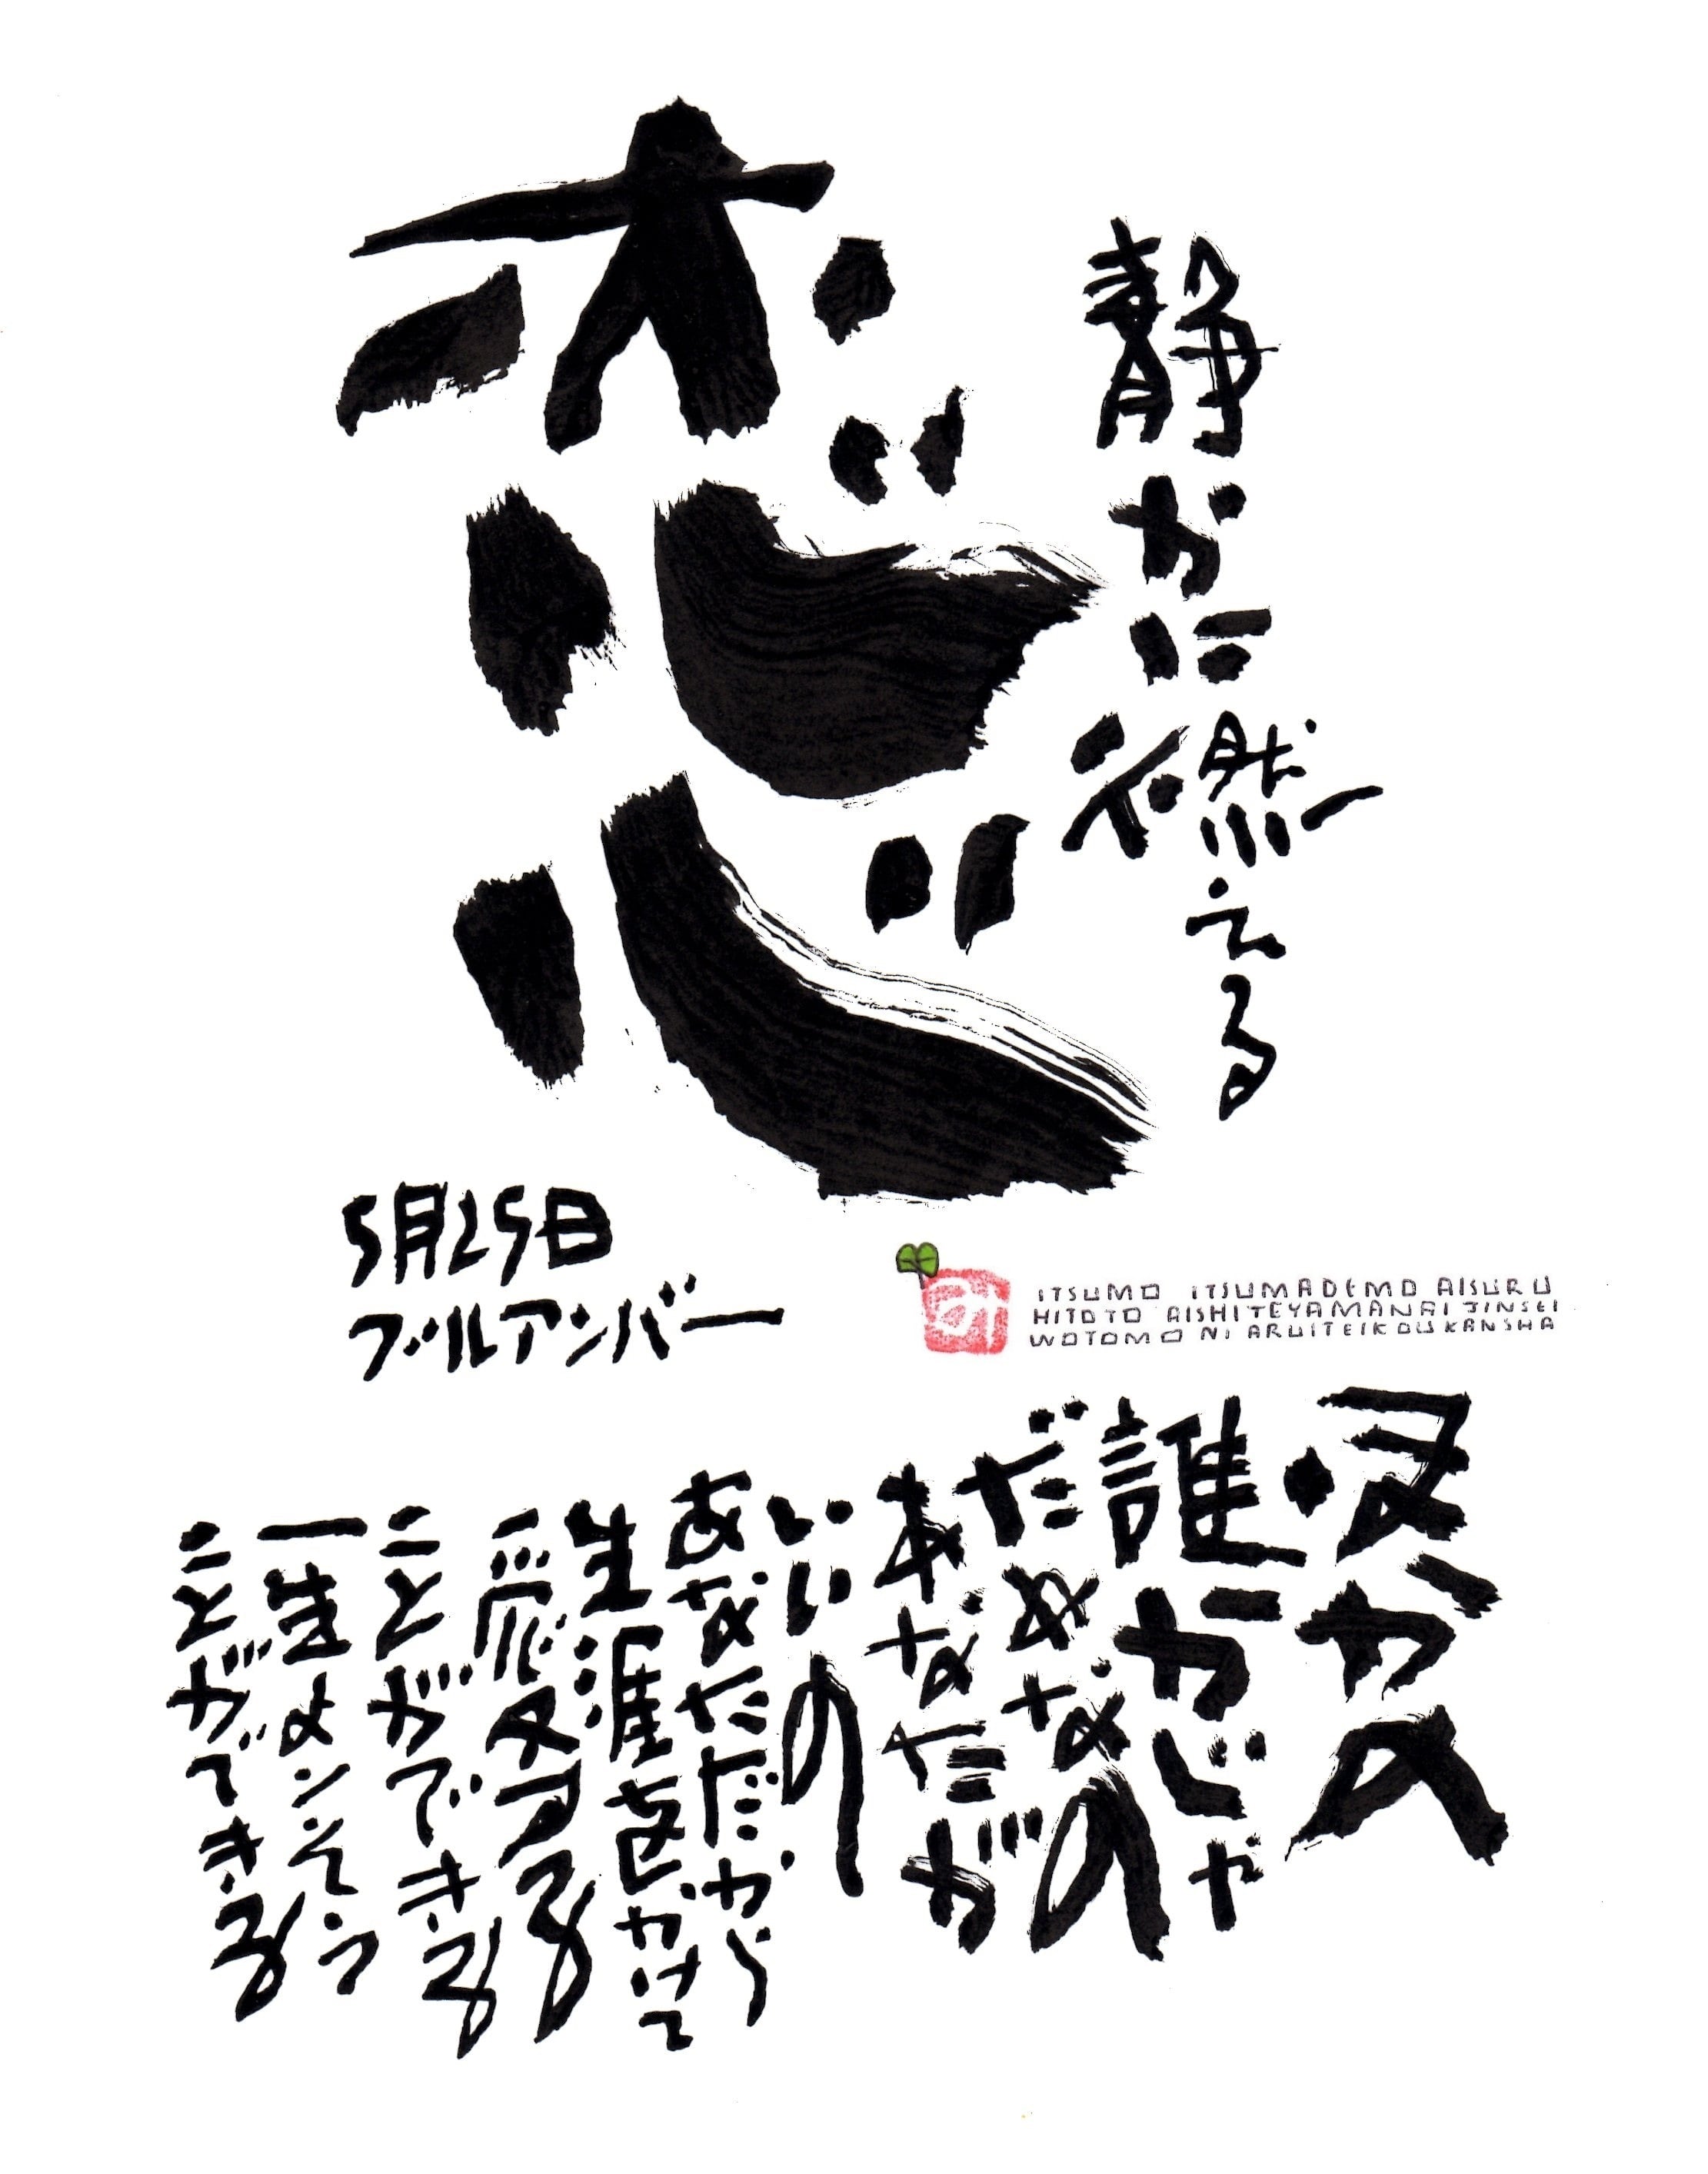 静かに燃える
恋心
5月25日
ブルアンバー
ITSUMO ITSUMADEMO AISURU
HITOTO AISHITEYAMANAI JINSEI
WOTOMO NI ARUITEIKOU KANSHA
ほかの
誰かじゃ
だめなの
あなたが
いいの
あなただから
生涯をかけて
愛する
ことができる
一生よりそう
ことができる